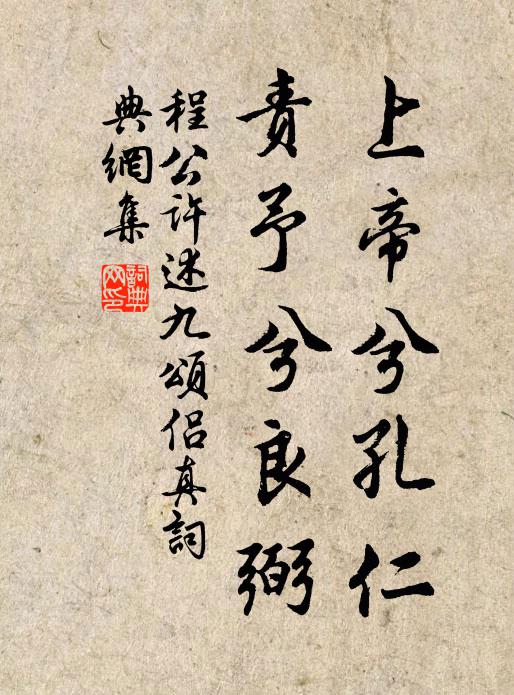 上帝兮孔仁
責予兮良弼
程公許述九頌侣真詞
典網集
詞典網印